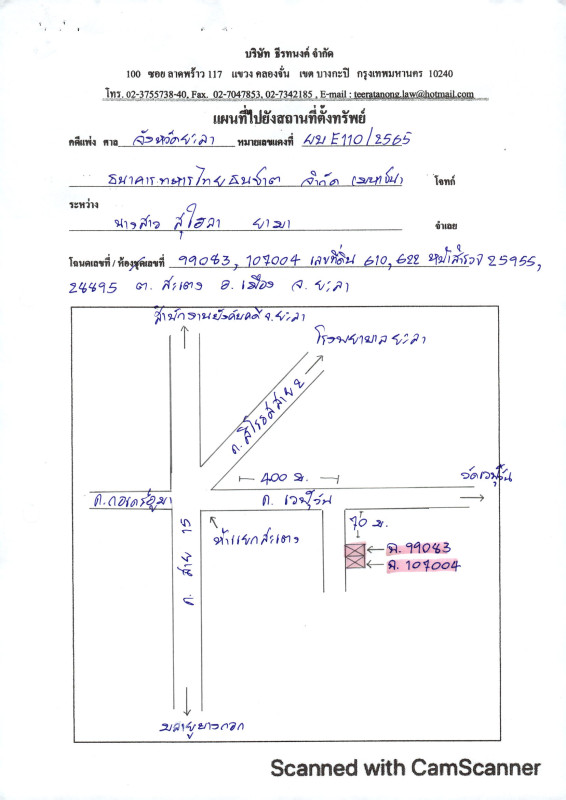 บริษัท ธีรทนงค์ จำกัด
100 ซอย ลาดพร้าว 117 แขวง คลองจั่น เขต บางกะปิ กรุงเทพมหานคร 10240
โทร. 02-3755738-40, Fax. 02-7047853, 02-7342185 , E-mail : teeratanong.law@hotmail.com
แผนที่ไปยังสถานที่ตั้งทรัพย์
คดีแพ่ง ศาล จังหวัดยะลา หมายเลขแดงที่ ผบ E110/2565
ธนาคารทหารไทยธนชาต จำกัด (มหาชน) โจทก์
ระหว่าง
นางสาว สุไฮลา ยามา จำเลย
โฉนดเลขที่ / ห้องชุดเลขที่ 99083, 107004 เลขที่ดิน 610, 622 หน้าสำรวจ 25955,
28895 ต. สะเตง อ. เมือง จ. ยะลา
สำนักงานบังคับคดี จ.ยะลา
โรงพยาบาลยะลา
ถ. สิโรรสสาย 2
400 ม.
วัดเวฬุวัน
ถ. เวฬุวัน
70 ม.
ห้าแยกสะเตง
ถ. สาย 15
ฉ. 99083
ฉ. 107004
Scanned with CamScanner